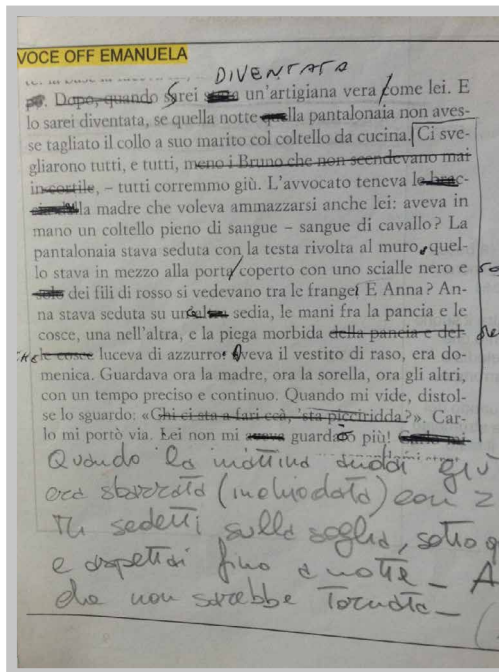 VOCE OFF EMANUELA
DIVENTATA
Dopo, quando sarei un'artigiana vera come lei. E
lo sarei diventata, se quella notte quella pantalonaia non aves-
se tagliato il collo a suo marito col coltello da cucina. Ci sve-
gliarono tutti, e tutti, meno i Bruno che non scendevano mai
in cortile, – tutti corremmo giù. L'avvocato teneva le brac-
la madre che voleva ammazzarsi anche lei: aveva in
mano un coltello pieno di sangue – sangue di cavallo? La
pantalonaia stava seduta con la testa rivolta al muro, quel-
lo stava in mezzo alla porta coperto con uno scialle nero e
solo dei fili di rosso si vedevano tra le frange. E Anna? An-
na stava seduta su sedia, le mani fra la pancia e le
cosce, una nell'altra, e la piega morbida della pancia e del-
le cosce luceva di azzurro: aveva il vestito di raso, era do-
menica. Guardava ora la madre, ora la sorella, ora gli altri,
con un tempo preciso e continuo. Quando mi vide, distol-
se lo sguardo: «Chi ci sta a fari ccà, 'sta picciridda?». Car-
lo mi portò via. Lei non mi aveva guardato più! Carlo mi
Quando la mattina andai giù
era sbarrata (inchiodata) con 2
Mi sedetti sulla soglia, sotto
e aspettai fino a notte – A
che non sarebbe tornata –